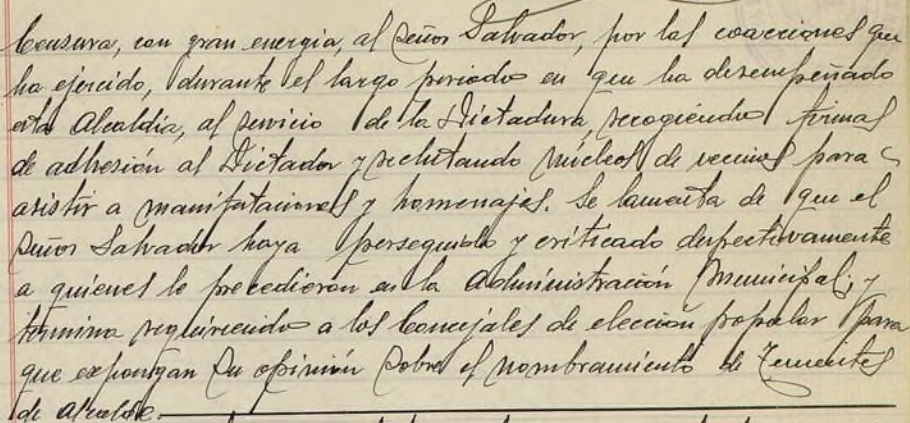 Censura, con gran energia, al Señor Salvador, por las coacciones que
ha ejercido, durante el largo periodo en que ha desempeñado
esta Alcaldía, al servicio de la Dictadura, recogiendo firmas
de adhesión al Dictador y reclutando núcleos de vecinos para
asistir a manifestaciones y homenajes. Se lamenta de que el
Señor Salvador haya perseguido y criticado despectivamente
a quienes le precedieron en la Administración Municipal; y
termina requiriendo a los Concejales de elección popular para
que expongan su opinión sobre el nombramiento de Tenientes
de Alcalde.